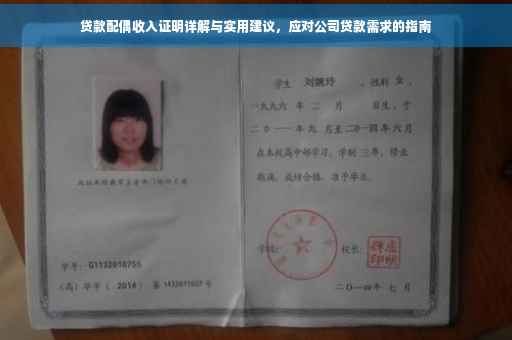 贷款配偶收入证明详解与实用建议，应对公司贷款需求的指南
学生 刘婉玲 ，性别 女 ，
一九九六 年 二 月 日生，于
二0一一年九 月至二0一四年六月
在本校高中部学习，学制 三年，修业
期满，成绩合格，准予毕业。
学校： 校长：
学号： G1132010755
（高）毕字（ 2014 ）第 1432011027 号
二〇一四年 七 月